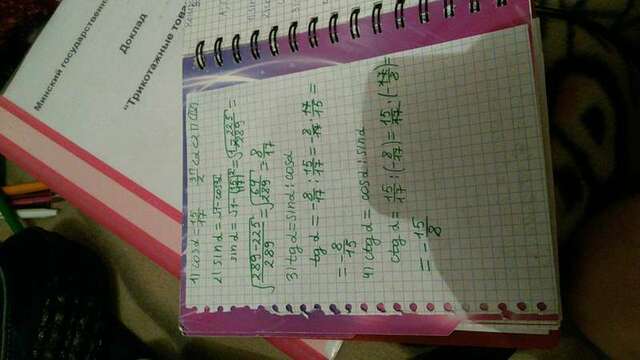 Минский государственн
Доклад
"Трикотажные това
1) cosα = 15/17 3π/2 <α<2π (IV)
2) sinα = √1-cos²α
sinα = √1-(15/17)² = √1-225/289 =
√289-225/289 = √64/289 = 8/17
3) tgα = sinα : cosα
tgα = -8/17 : 15/17 = -8/17 · 17/15 =
= -8/15
4) ctgα = cosα : sinα
ctgα = 15/17 : (-8/17) = 15/17 · (-17/8) =
= -15/8